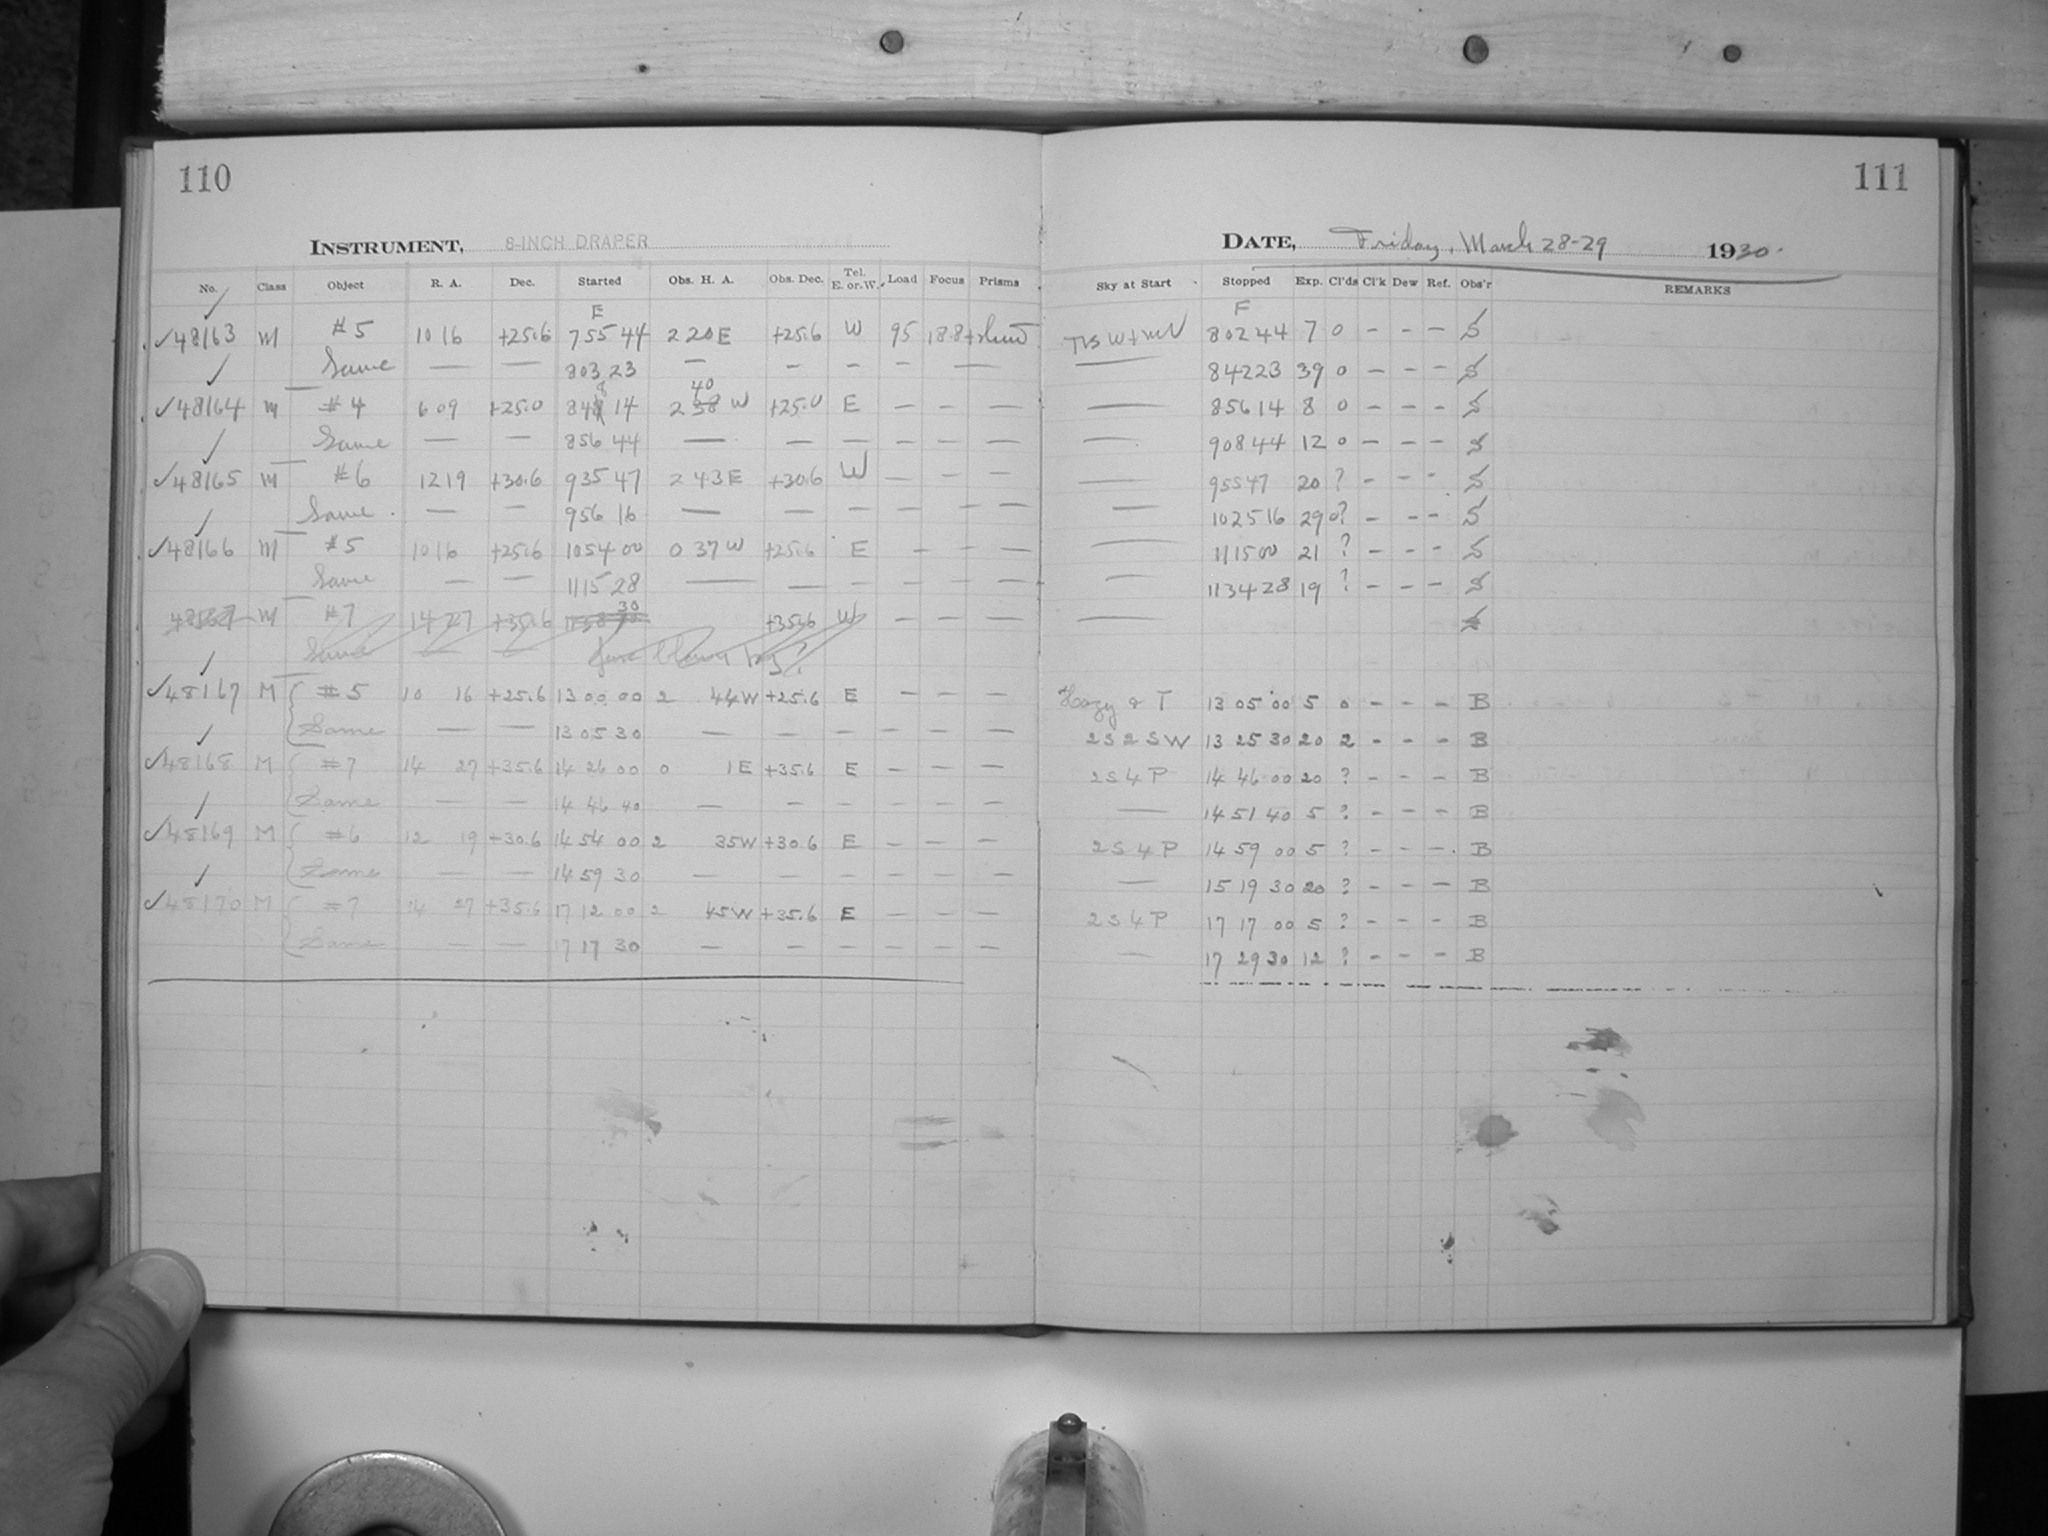 110
INSTRUMENT, 8-INCH DRAPER
No. Class Object R. A. Dec. Started Obs. H. A. Obs. Dec. Tel. E. or W. Load Focus Prisms
E
✓48163 M #5 10 16 +25.6 7 55 44 2 20 E +25.6 W 95 18.8+
✓ Same — — 8 03 23 — — — — — —
✓48164 M #4 6 09 +25.0 84 14 2 38 40 W +25.0 E — — —
✓ Same — — 8 56 44 — — — — — —
✓48165 M #6 12 19 +30.6 9 35 47 2 43 E +30.6 W — — —
✓ Same — — 9 56 16 — — — — — —
✓48166 M #5 10 16 +25.6 10 54 00 0 37 W +25.6 E — — —
Same — — 11 15 28 — — — — — —
48167 M #7 14 27 +35.6 30 +35.6 W — — —
Same — —
✓48167 M #5 10 16 +25.6 13 00 00 2 44 W +25.6 E — — —
✓ Same — — 13 05 30 — — — — — —
✓48168 M #7 14 27 +35.6 14 26 00 0 1 E +35.6 E — — —
✓ Same — — 14 46 40 — — — — — —
✓48169 M #6 12 19 +30.6 14 54 00 2 35 W +30.6 E — — —
✓ Same — — 14 59 30 — — — — — —
✓48170 M #7 14 27 +35.6 17 12 00 2 45 W +35.6 E — — —
Same — — 17 17 30 — — — — — —
111
DATE, Friday, March 28-29 1930.
Sky at Start Stopped Exp. Cl'ds Cl'k Dew Ref. Obs'r REMARKS
F
8 02 44 7 0 — — — S
— 8 42 23 39 0 — — — S
— 8 56 14 8 0 — — — S
— 9 08 44 12 0 — — — S
— 9 55 47 20 ? — — — S
— 10 25 16 29 0? — — — S
— 11 15 00 21 ? — — — S
— 11 34 28 19 ? — — — S
— S
Hazy & T 13 05 00 5 0 — — — B
2 S 2 SW 13 25 30 20 2 — — — B
2 S 4 P 14 46 00 20 ? — — — B
— 14 51 40 5 ? — — — B
2 S 4 P 14 59 00 5 ? — — — B
— 15 19 30 20 ? — — — B
2 S 4 P 17 17 00 5 ? — — — B
— 17 29 30 12 ? — — — B